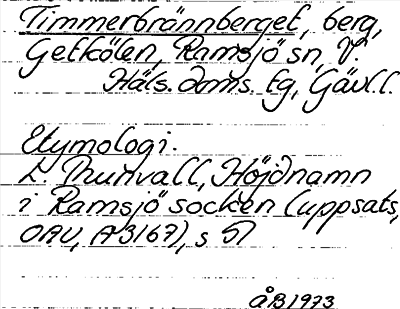 Timmerbrännberget, berg,
Getkölen, Ramsjö sn, V.
Häls. doms. tg, Gävl.l.
Etymologi.
L. Thunvall, Höjdnamn
i Ramsjö socken (uppsats,
OAU, A3167), s 51
ÅB 1973